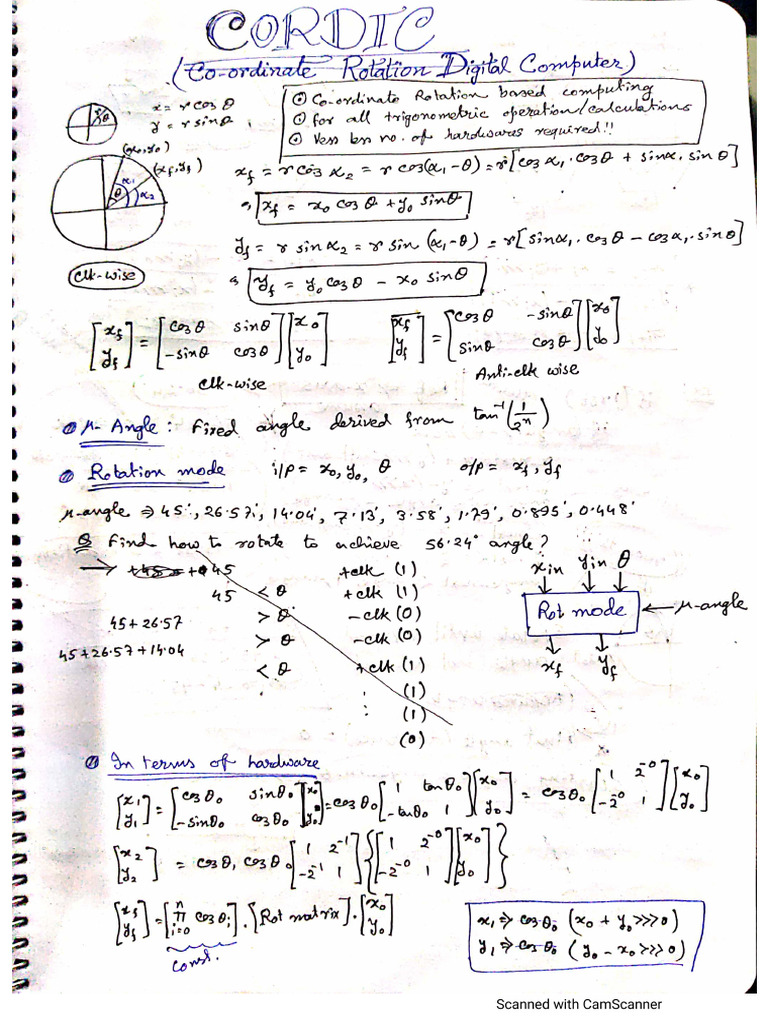 CORDIC
(Co-ordinate Rotation Digital Computer)
x = r cos θ
y = r sin θ
⊙ Co-ordinate Rotation based computing
⊙ for all trigonometric operation/calculations
⊙ Very less no. of hardwares required!!
(x₀,y₀)
(x_f,y_f)
θ α₁ α₂
x_f = r cos α₂ = r cos(α₁-θ) = r[cos α₁. cos θ + sin α₁. sin θ]
x_f = x₀ cos θ + y₀ sin θ
y_f = r sin α₂ = r sin (α₁-θ) = r[sin α₁. cos θ - cos α₁. sin θ]
clk-wise
y_f = y₀ cos θ - x₀ sin θ
[x_f y_f] = [cos θ sin θ -sin θ cos θ][x₀ y₀]
[x_f y_f] = [cos θ -sin θ sin θ cos θ][x₀ y₀]
clk-wise
Anti-clk wise
μ- Angle : Fixed angle derived from tan⁻¹(1/2ⁿ)
Rotation mode i/p = x₀, y₀, θ o/p = x_f, y_f
μ-angle ⇒ 45°, 26.57°, 14.04°, 7.13°, 3.58°, 1.79°, 0.895°, 0.448°
Q Find how to rotate to achieve 56.24° angle?
→ 45 +clk (1)
45 < θ +clk (1)
45+26.57 > θ -clk (0)
45+26.57+14.04 > θ -clk (0)
< θ +clk (1)
(1)
(1)
(0)
x_in y_in θ
Rot mode ← μ-angle
x_f y_f
In terms of hardware
[x₁ y₁] = [cos θ₀ sin θ₀ -sin θ₀ cos θ₀][x₀ y₀] = cos θ₀ [1 tan θ₀ -tan θ₀ 1][x₀ y₀] = cos θ₀ [1 2⁻⁰ -2⁻⁰ 1][x₀ y₀]
[x₂ y₂] = cos θ₁ cos θ₀ [1 2⁻¹ -2⁻¹ 1]{[1 2⁻⁰ -2⁻⁰ 1][x₀ y₀]}
[x_f y_f] = [ⁿπᵢ₌₀ cos θᵢ].[Rot matrix].[x₀ y₀]
const.
x₁ ⇒ cos θ₀ (x₀ + y₀ >>> 0)
y₁ ⇒ cos θ₀ (y₀ - x₀ >>> 0)
Scanned with CamScanner